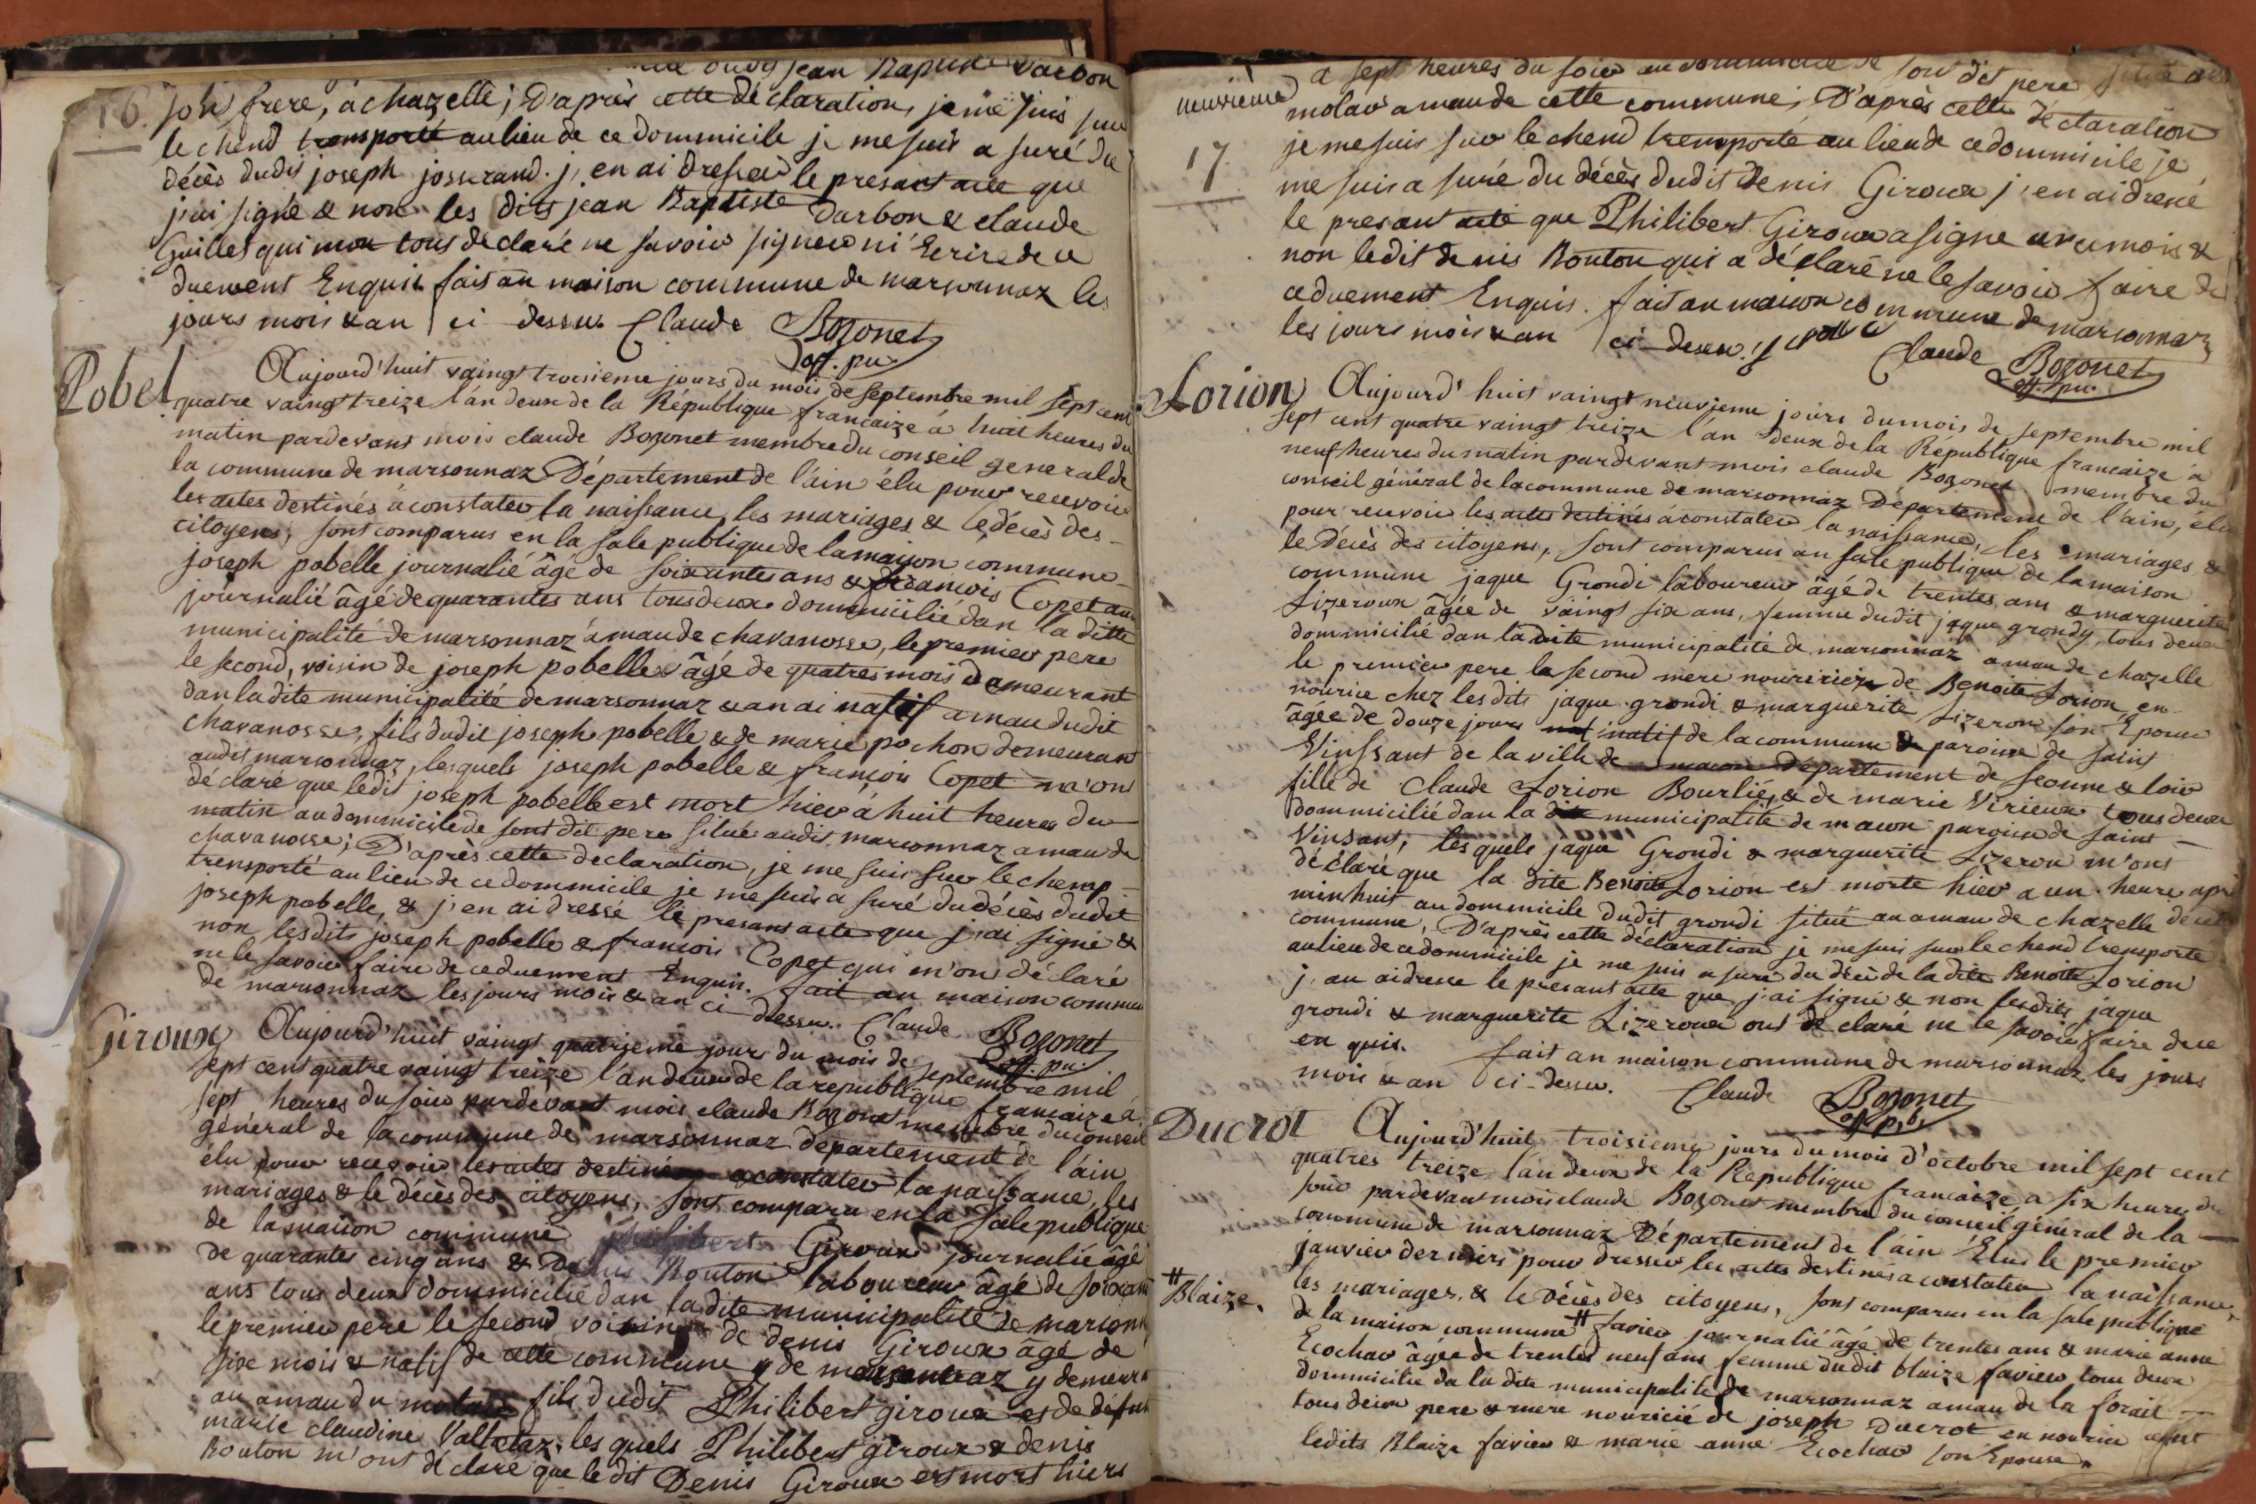 16.
jean Baptiste Darbon
son frere, à chazelle; D'après cette déclaration, je me suis sur
le chend transporté au lieu de ce dommicile je me suis a suré du
décès dudit joseph josserand. j'en ai dressé le presant acte que
j'ai signé & non les dits jean Baptiste Darbon & claude
Guillet qui mon tous declaré ne savoir signer ni Ecrire de ce
duement Enquis fait an maison commune de marsonnaz les
jours mois & an ci dessus Claude Bozonet
off. pu.
Pobel
Aujourd'huit vaingt troisieme jours du mois de septembre mil sept cent
quatre vaingt treize l'an deux de la République francaize à huit heures du
matin pardevant mois claude Bozonet membre du conseil general de
la commune de marsonnaz Département de l'ain élu pour recevoir
les actes destinés à constater la naissance, les mariages & le décès des
citoyens, sont comparus en la sale publique de la maison commune
joseph pobelle journalié âgé de soixantes ans & francois Copet aussi
journalié âgé de quarantes ans tous deux dommicilié dan la ditte
municipalité de marsonnaz amau de chavanosse, le premier pere
le second, voisin de joseph pobelle âgé de quatres mois demeurant
dan la dite municipalité de marsonnaz & an ai natif amau dudit
chavanosse, fils dudit joseph pobelle & de marie pochon demeurant
audit marsonnaz, lesquels joseph pobelle & françois Copet m'ont
déclaré que ledit joseph pobelle est mort hier à huit heures du
matin au dommicile de sont dit pere situé audit marsonnaz amau de
chavanosse; D'après cette declaration, je me suis sur le chemp
transporté au lieu de ce dommicile je me suis a suré du décès dudit
joseph pobelle, & j'en ai dressé le presant acte que j'ai signé &
non lesdits joseph pobelle & francois Copet qui m'on déclaré
ne le savoir faire de ce duement Enquis. fait an maison commune
de marsonnaz les jours mois & an ci-dessu. Claude Bozonet
off. pu.
Giroux
Aujourd'huit vaingt quatrieme jours du mois de septembre mil
sept cent quatre vaingt treize l'an deux de la republique francaize à
sept heures du soir pardevant mois claude Bozonet membre du conseil
général de la commune de marsonnaz département de l'ain
élu pour recevoir les actes destiné a constater la naissance, les
mariages & le décès des citoyens, sont comparu en la sale publique
de la maison commune philibert Giroux journalié âgé
de quarantes cinq ans & Denis Bouton laboureur âgé de soixante
ans tous deux dommicilié dan la dite municipalité de marsonnaz
le premier pere le second voisin de denis Giroux âgé de
six mois & natif de cette commune de marsonnaz y demeurant
au amau du molar fils dudit Philibert giroux et de défunt
marie claudine Valletaz, lesquels Philibert giroux & denis
Bouton m'ont déclaré que le dit Denis Giroux est mort hiers
neuvieme
17
a sept heures du soir au dommicile de son dit pere situé
molar amau de cette commune; D'après cette déclaration
je me suis sur le chend transporté au lieu de ce dommicile je
me suis a suré du décès dudit Denis Giroux j'en ai dressé
le presant acte que Philibert Giroux a signé avec mois &
non ledit denis Bouton qui a déclaré ne le savoir faire de
ce duement Enquis. fait an maison commune de marsonnaz
les jours mois & an ci-dessu.
Claude Bozonet
off. pu.
Lorion
Aujourd'huit vaingt neuvieme jours du mois de septembre mil
sept cent quatre vaingt treize l'an deux de la République francaize à
neuf heures du matin pardevant mois claude Bozonet membre du
conseil général de la commune de marsonnaz Département de l'ain, élu
pour recevoir les actes destinés à constater la naissance, les mariages &
le Décès des citoyens, sont comparus an sale publique de la maison
commune jaque Grondi laboureur âgé de trentes ans & marguerite
Lizeroux âgée de vaingt six ans, femme dudit jaque grondy, tous deux
dommicilié dan la dite municipalité de marsonnaz amau de chazelle
le premier pere la second mere nouricier de Benoite Lorion, en
nourice chez lesdits jaque grondi & marguerite Lizeron son Epouse
âgée de douze jours natif de la commune & paroisse de saint
Vinssant de la ville de macon Département de seonne & loir
fille de Claude Lorion Bourlié, & de marie Virieux tous deux
dommicilié dan la dite municipalité de macon paroisse de saint
Vinsant, lesquels jaque Grondi & marguerite Lizeron m'ont
déclaré que la dite Benoite Lorion est morte hier a un heure après
minhuit au dommicile dudit grondi situé au amau de chazelle de cette
commune, D'après cette déclaration je me suis sur le chend transporté
au lieu de ce dommicile je me suis a suré du décè de la dite Benoite Lorion
j'an ai dressé le présant acte que j'ai signé & non lesdits jaque
grondi & marguerite Lizeroux ont declaré ne le savoir faire de ce
en quis. fait an maison commune de marsonnaz les jours
mois & an ci-dessu. Claude Bozonet
off. pub.
Ducrot
Aujourd'huit troisieme jours du mois d'octobre mil sept cent
quatres treize l'an deux de la République francaize a six heures du
soir pardevant mois claude Bozonet membre du conseil général de la
commune de marsonnaz Département de l'ain Elus le premier
janvier derniers pour dresser les actes destinés a constater la naissance,
les mariages, & le décès des citoyens, sont comparus en la sale publique
# Blaize.
de la maison commune # favier journalié âgé de trentes ans & marie anne
Ecochar âgée de trentes neuf ans femme dudit blaize favier, tous deux
dommicilié da la dite municipalité de marsonnaz amau de la forait
tous deux pere & mere nouricié de joseph Ducrot en nourice chez
ledits Blaize favier & marie anne Ecochar son Epouse